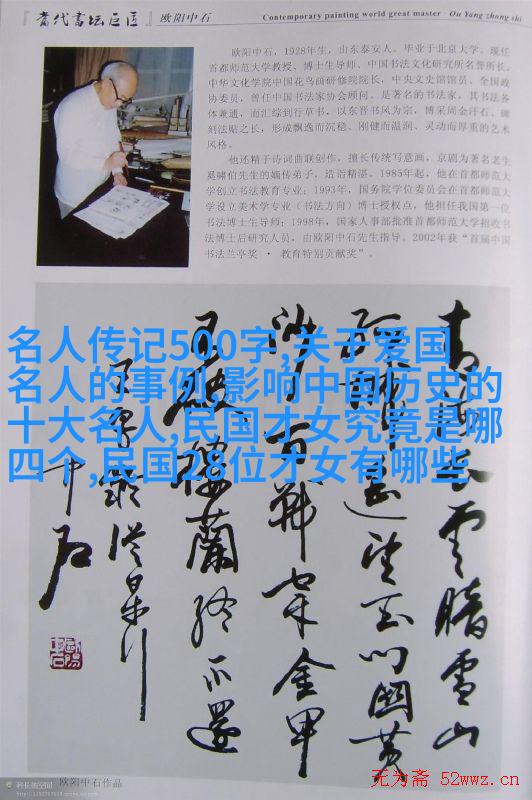 『当代书坛巨匠』 欧阳中石
Contemporary painting world great master · Ou Yang zhong shi
欧阳中石，1928年生，山东泰安人。毕业于北京大学。现任
首都师范大学教授、博士生导师、中国书法文化研究所名誉所长，
中华文化学院中国花鸟画研修院院长，中央文史馆馆员、全国政
协委员，曾任中国书法家协会顾问。是著名的书法家，其书法各
体兼通，而汇综到行草书，以东晋书风为宗，博采周金汗石、碑
刻法贴之长，形成飘逸而沉稳、刚健而温润、灵动而厚重的艺术
风格。
他还精于诗词曲联创作，擅长传统写意画，京剧为著名老生
奚啸伯先生的嫡传弟子，造诣精湛。1985年起，他在首都师范大
学创立书法教育专业；1993年，国务院学位委员会在首都师范大
学设立美术学专业（书法方向）博士授权点，他担任我国第一位
书法博士生导师；1998年，国家人事部批准首都师范大学招收书
法博士后研究人员，由欧阳中石先生指导。2002年获“首届中国
书法兰亭奖 · 教育特别贡献奖”。
名人传记500字,关于爱国
名人的事例,影响中国历史的
十大名人,民国才女究竟是哪
四个,民国28位才女有哪些
青海长云暗雪山
孤城遥望玉门关黄
沙百战穿金甲
不破楼兰终不还
中石
欧阳中石作品
无为斋 52wwz.cn